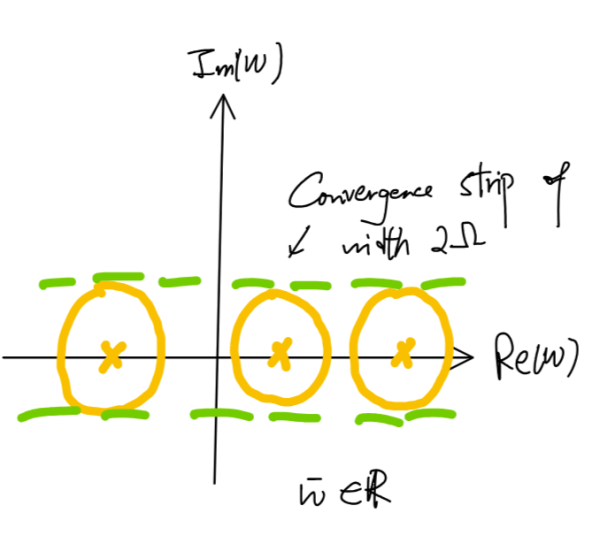 Im(w)
Convergence strip of
width 2Ω
Re(w)
w̄ ∈ ℝ